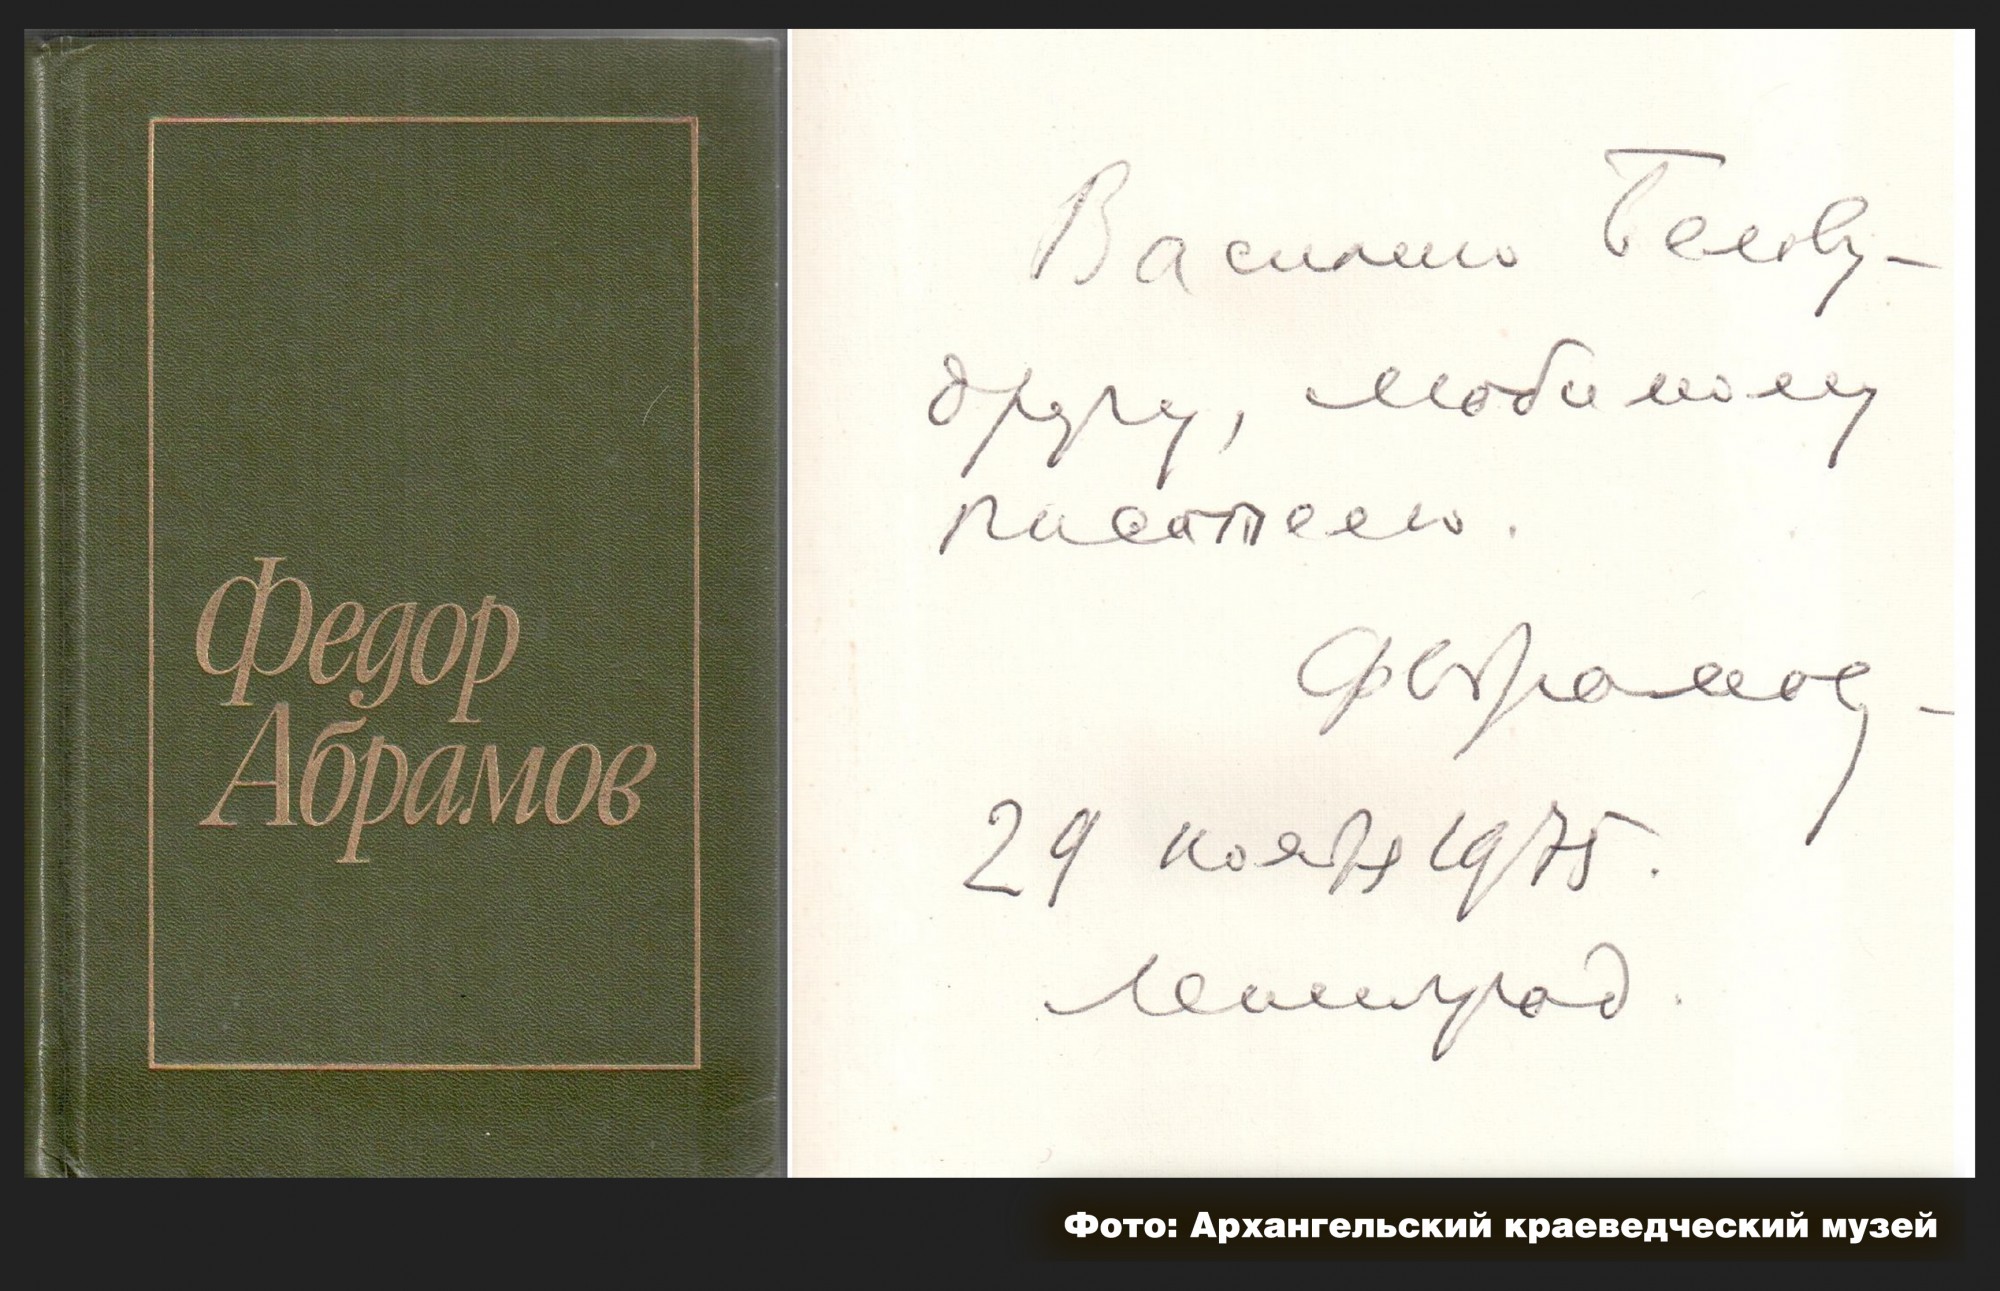 Федор
Абрамов
Василию Белову –
другу, любимому
писателю.
ФАбрамов –
29 ноября 1975.
Ленинград.
Фото: Архангельский краеведческий музей